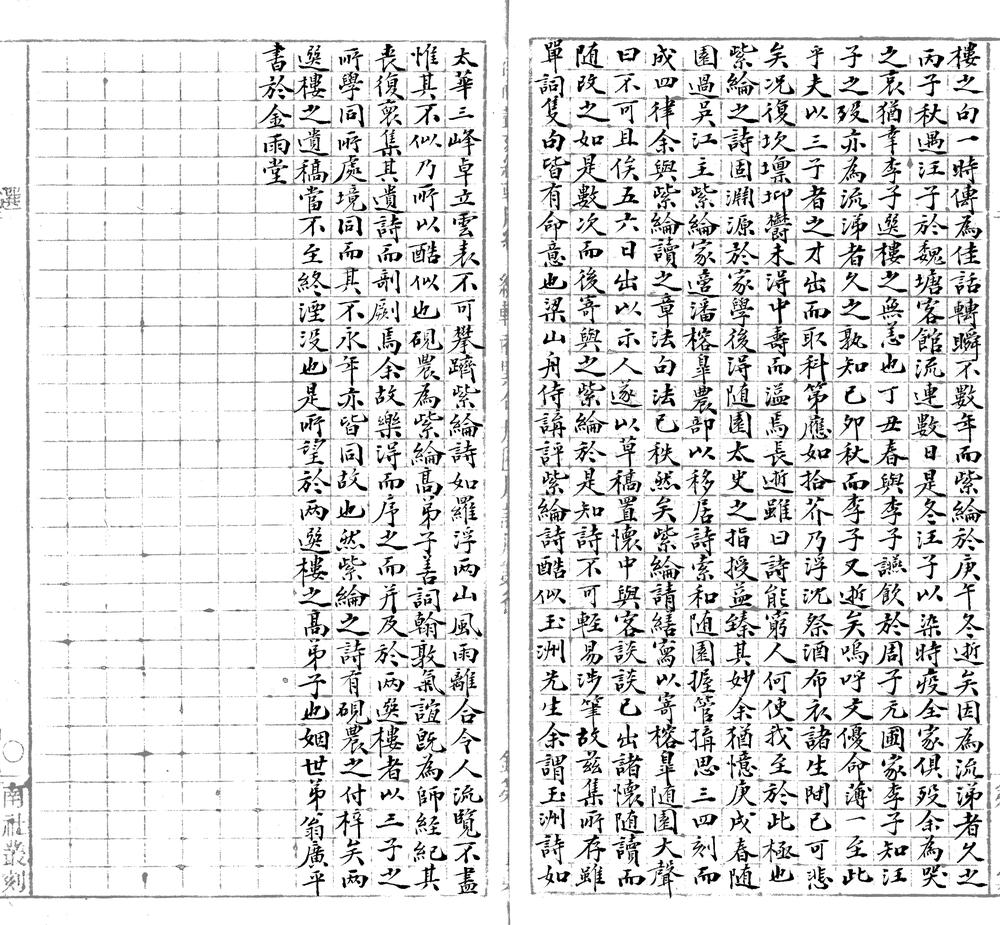 樓之句一時傳為佳話轉瞬不數年而紫綸於庚午冬逝矣因為流涕者久之
丙子秋遇汪子於魏塘客館流連數日是冬汪子以染時疫全家俱歿余為哭
之哀猶幸李子選樓之無恙也丁丑春與李子讌飲於周子元圃家李子知汪
子之歿亦為流涕者久之孰知己卯秋而李子又逝矣嗚呼文優命薄一至此
乎夫以三子者之才出而取科第應如拾芥乃浮沉祭酒布衣諸生間已可悲
矣况復坎壈抑鬱未得中壽而溘焉長逝雖曰詩能窮人何使我至於此極也
紫綸之詩固淵源於家學後得随園太史之指授益臻其妙余猶憶庚戌春随
園過吳江主紫綸家壹潘榕臯農部以移居詩索和随園握管搆思三四刻而
成四律余與紫綸讀之章法句法已秩然矣紫綸請繕寫以寄榕臯随園大聲
曰不可且俟五六日出以示人遂以草稿置懷中與客談談已出諸懷随讀而
随改之如是數次而後寄與之紫綸於是知詩不可輕易涉筆故兹集所存雖
單詞隻句皆有命意也梁山舟侍講評紫綸詩酷似玉洲先生余謂玉洲詩如
太華三峰卓立雲表不可攀躋紫綸詩如羅浮兩山風雨離合令人流覽不盡
惟其不似乃所以酷似也硯農為紫綸高弟子善詞翰敦氣誼旣為師經紀其
喪復裒集其遺詩而剞劂焉余故樂得而序之而并及於兩選樓者以三子之
所學同所處境同而其不永年亦皆同故也然紫綸之詩有硯農之付梓矣兩
選樓之遺稿當不至終湮没也是所望於兩選樓之高弟子也姻世弟翁廣平
書於金雨堂
選
南社叢刻